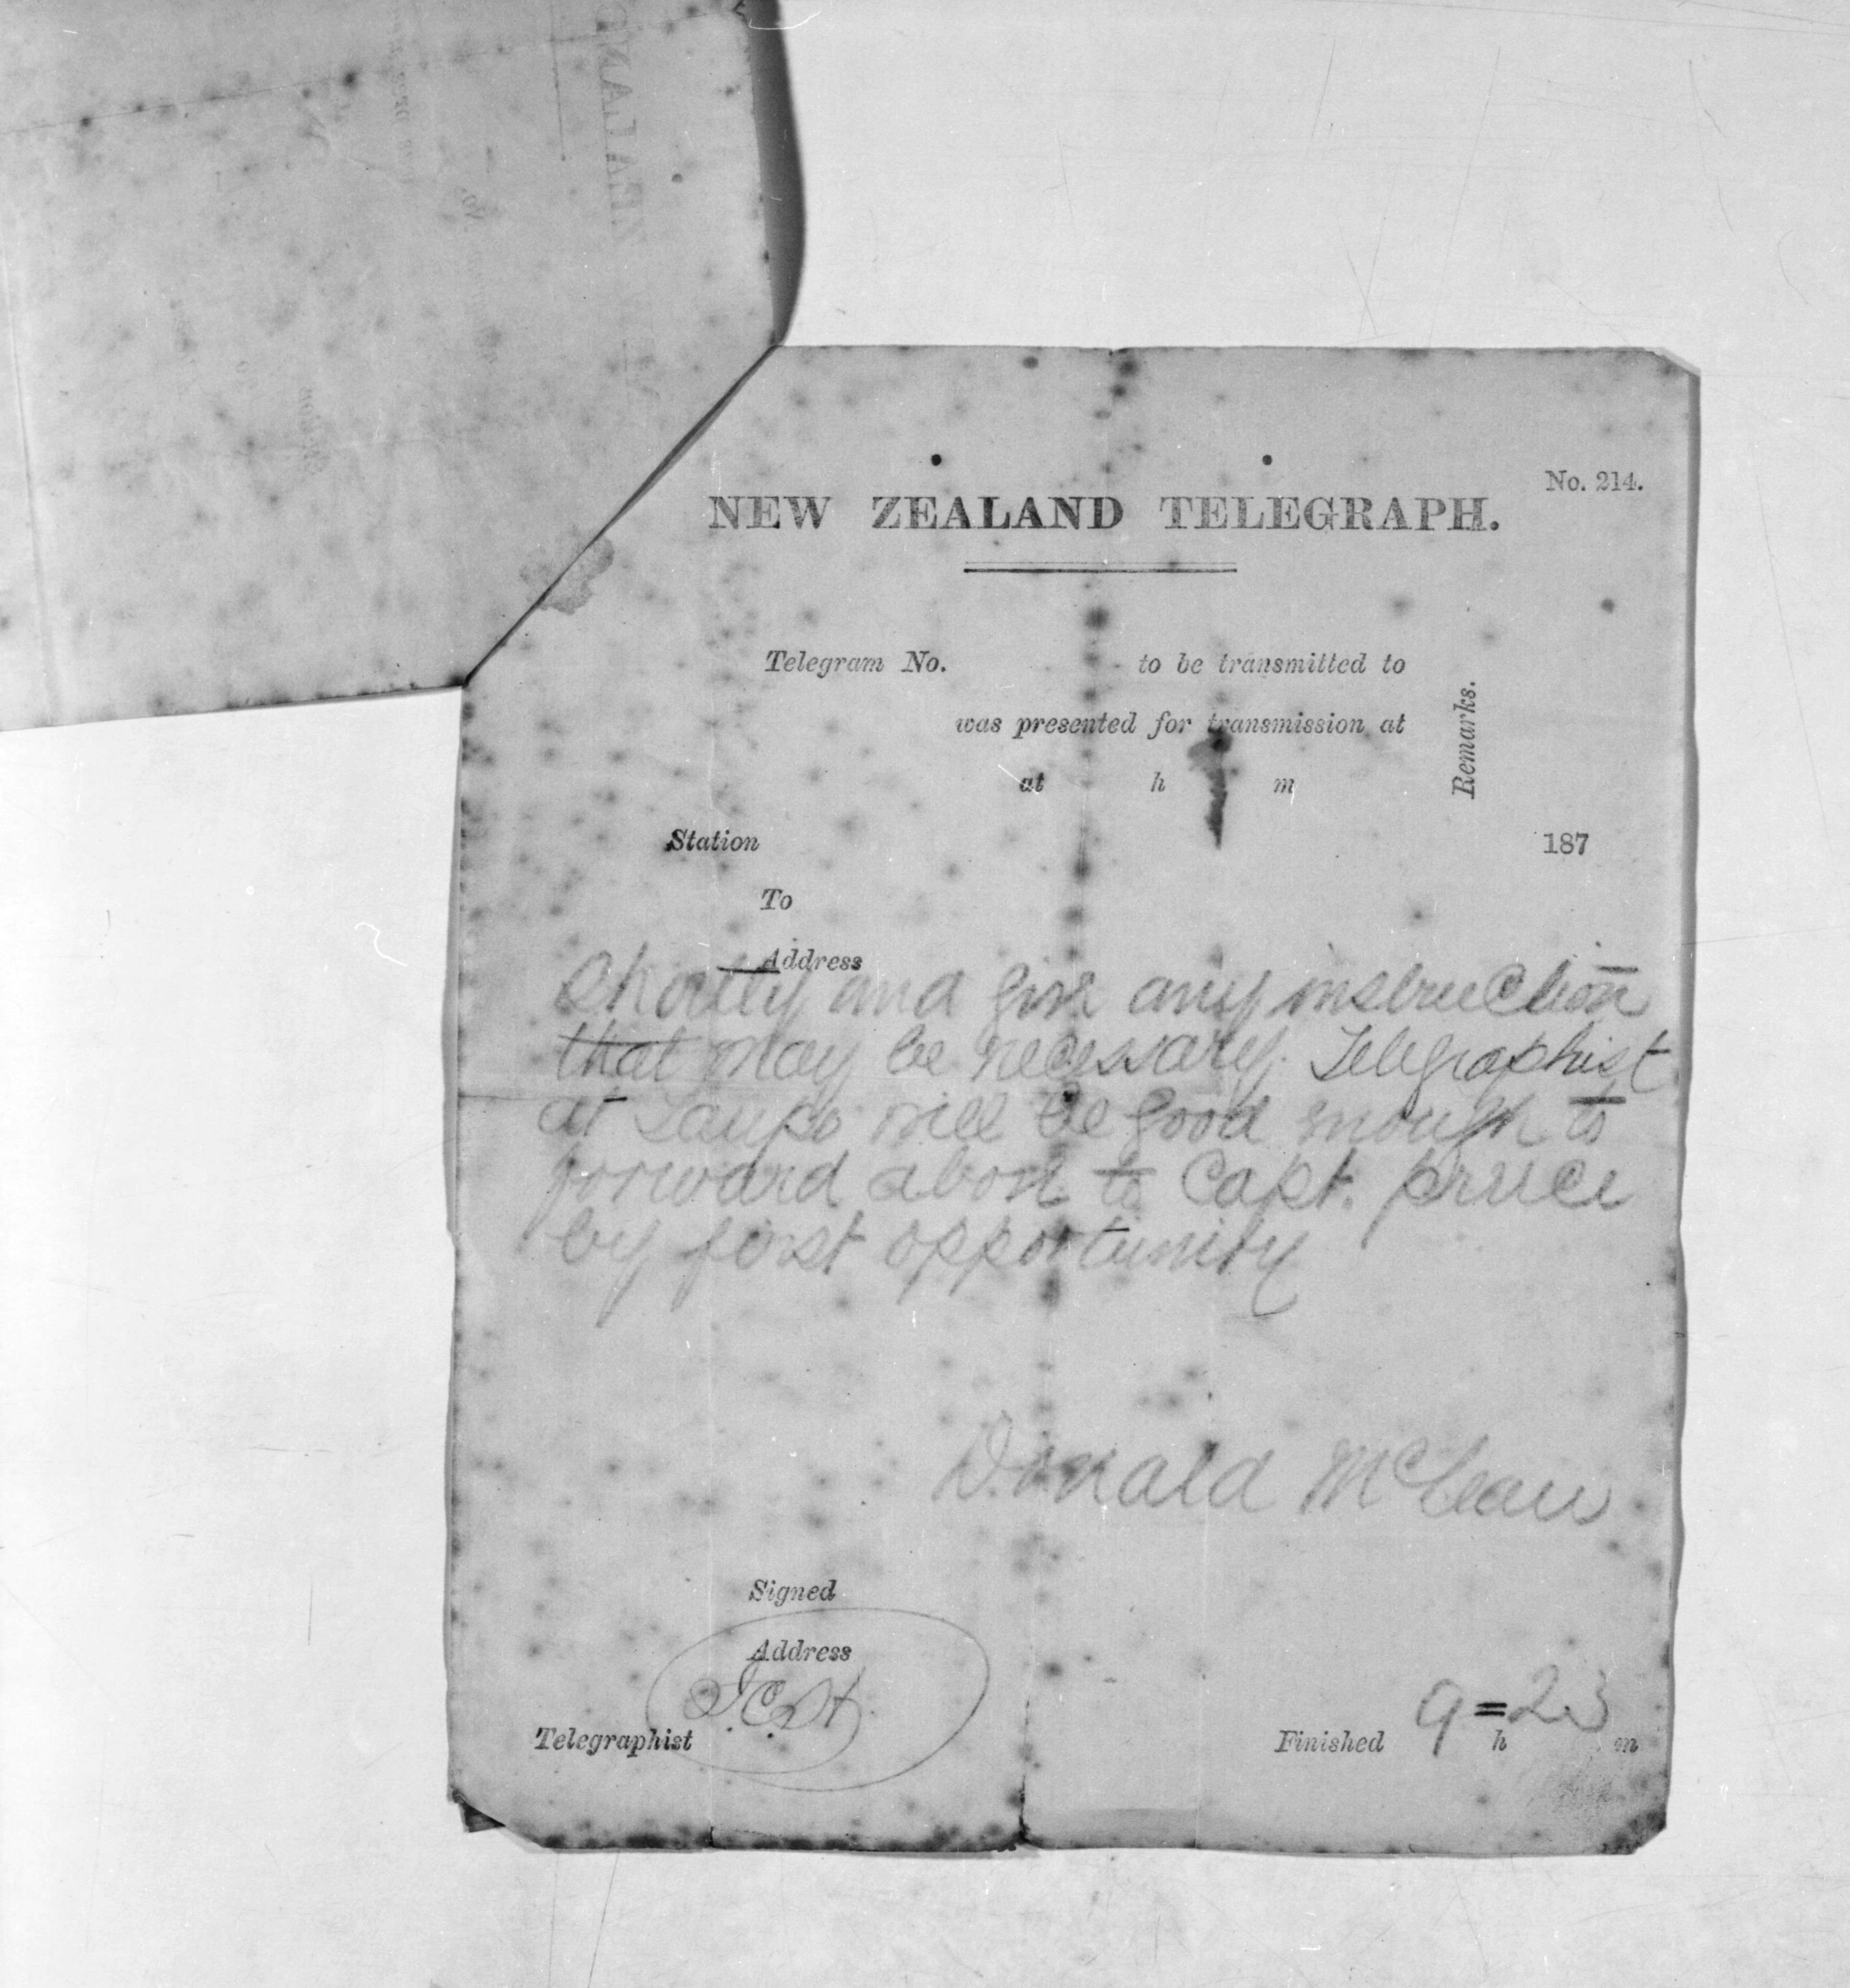 No. 214.
NEW ZEALAND TELEGRAPH.
Telegram No. to be transmitted to
was presented for transmission at
at h m
Remarks.
Station 187
To
Address
Shortly and give any instruction
that may be necessary. Telegraphist
at Taupo will be good enough to
forward above to Capt. pruce
by first opportunity
Donald McLean
Signed
Address
Telegraphist
Finished 9 = 23
h m